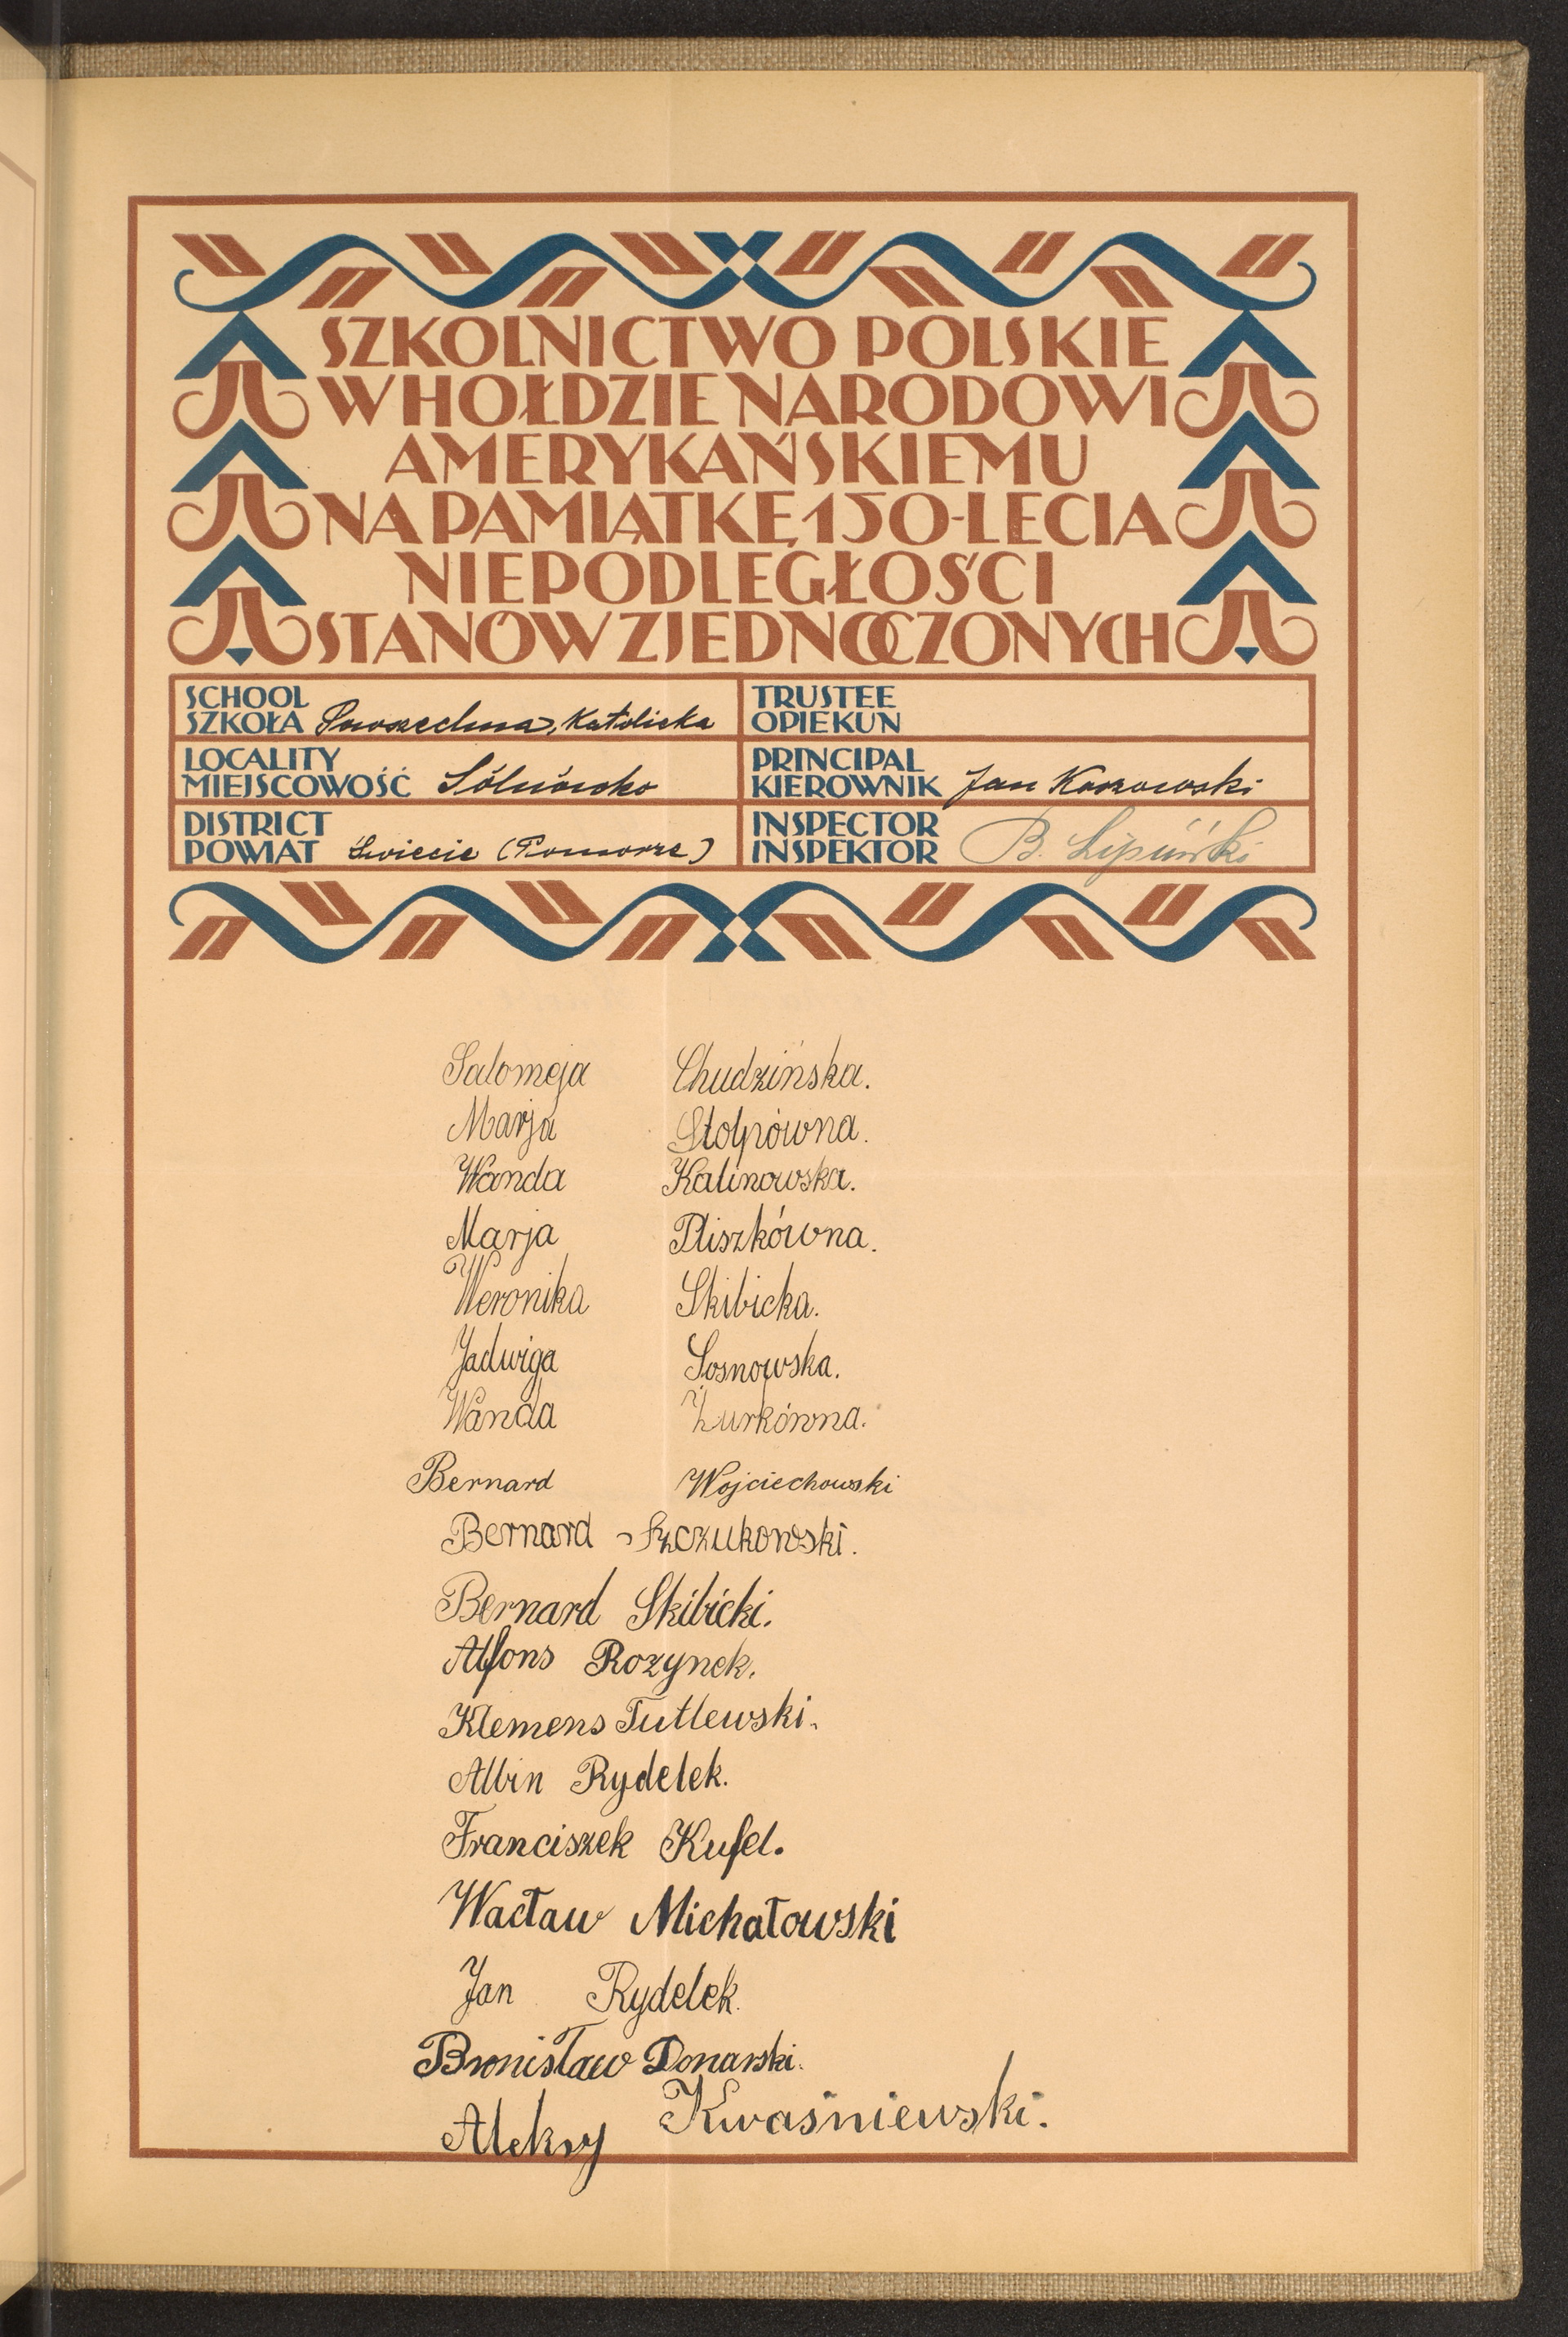 SZKOLNICTWO POLSKIE
W HOŁDZIE NARODOWI
AMERYKAŃSKIEMU
NA PAMIĄTKĘ 150-LECIA
NIEPODLEGŁOŚCI
STANÓW ZJEDNOCZONYCH
SCHOOL
SZKOŁA Powszechna, Katolicka
TRUSTEE
OPIEKUN
LOCALITY
MIEJSCOWOŚĆ Sólnówko
PRINCIPAL
KIEROWNIK Jan Kossowski
DISTRICT
POWIAT Świecie (Pomorze)
INSPECTOR
INSPEKTOR B. Lipiński
Salomeja Chudzińska.
Marja Stolpówna.
Wanda Kalinowska.
Marja Pliszkówna.
Weronika Skibicka.
Jadwiga Sosnowska.
Wanda Żurkówna.
Bernard Wojciechowski
Bernard Szczukowski.
Bernard Skibicki.
Alfons Rozynek.
Klemens Tutlewski.
Albin Rydelek.
Franciszek Kufel.
Wacław Michałowski
Jan Rydelek.
Bronisław Donarski.
Aleksy Kwaśniewski.